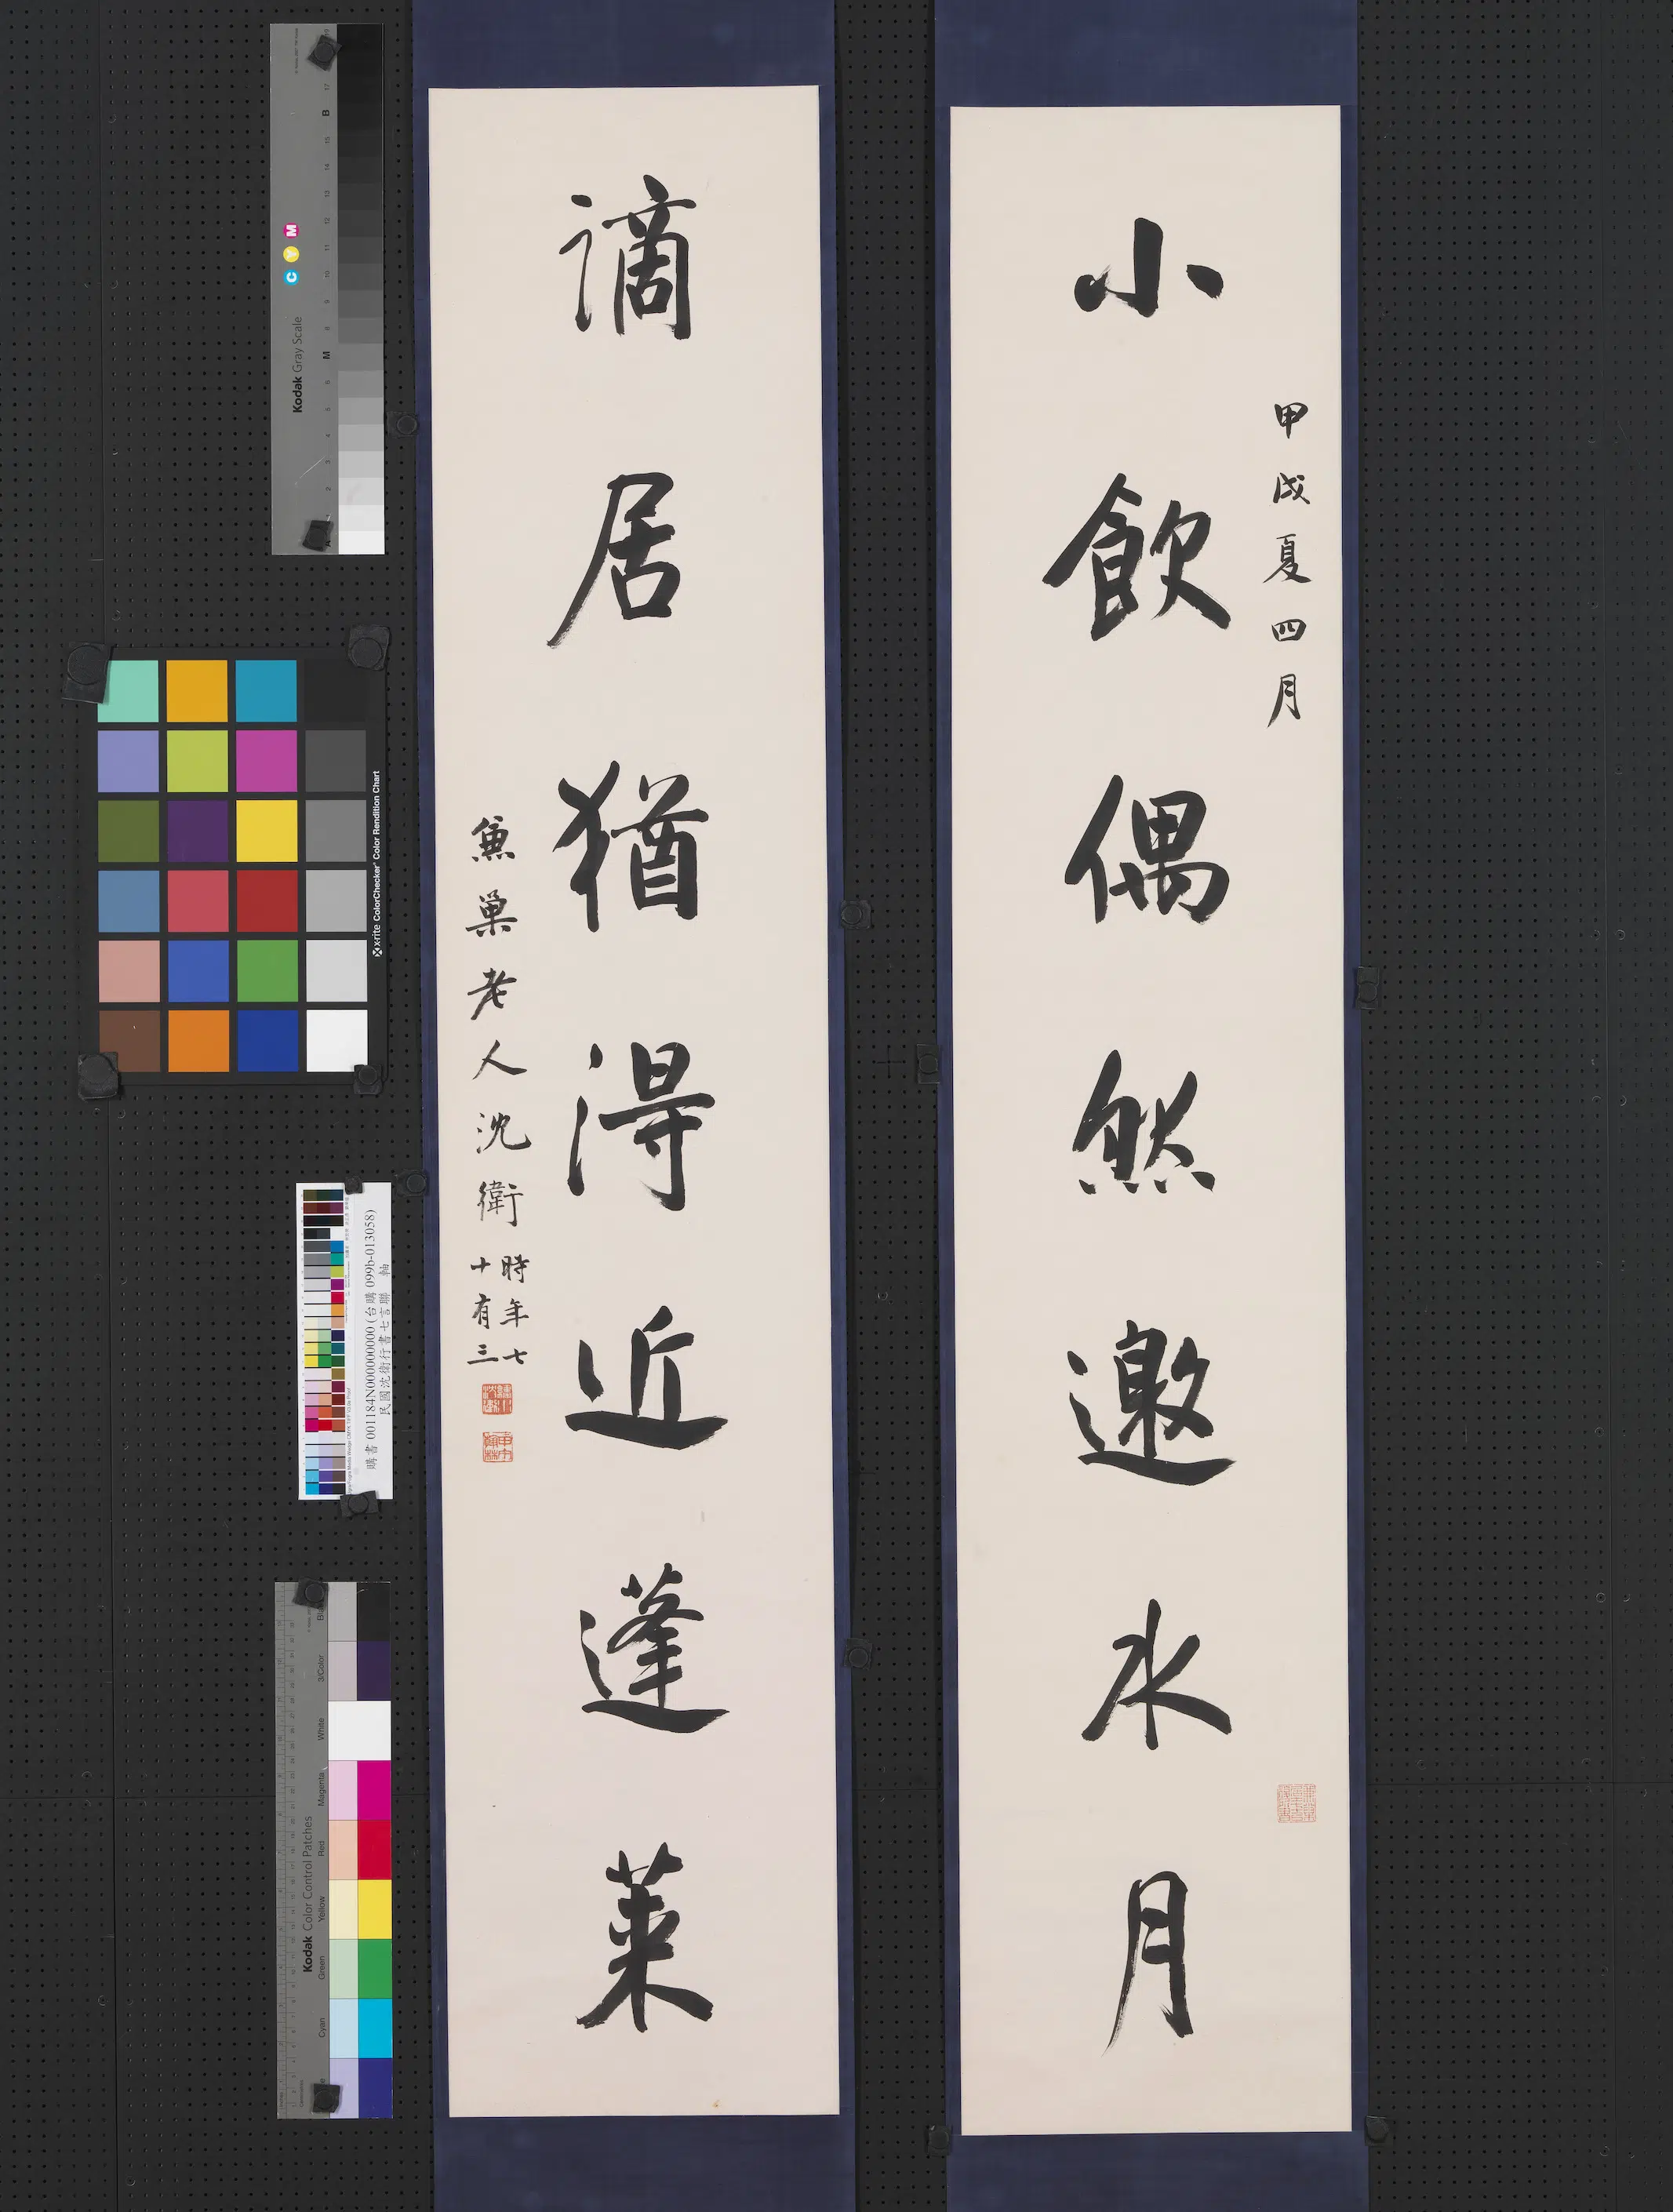 甲戌夏四月
小飲偶然邀水月
謫居猶得近蓬萊
兼巢老人沈衛
時年七
十有三
Kodak Gray Scale
C Y M
x-rite ColorChecker Color Rendition Chart
購書 001184N000000000 (台購 099b-013058)
民國沈衛行書七言聯 軸
Kodak Color Control Patches
3/Color
White
Magenta
Red
Yellow
Green
Cyan